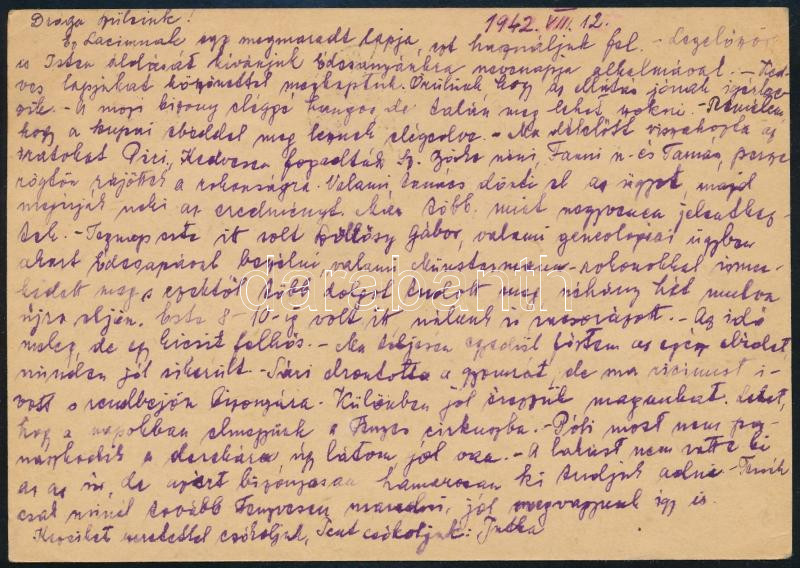 Drága szüleink! 1942. VII. 12.
Ez Lacimnak egy megmaradt lapja, ezt használjuk fel. - Legelőször
is Isten áldását kívánjuk Édesanyánkra nevenapja alkalmával. - Ked-
ves lapjukat köszönettel megkaptuk. Örülünk, hogy az
- A mozi bizony eléggé hangos de talán meg lehet szokni. - Remélem
hogy a kupai ebéddel meg lesznek elégedve. - Ma délelőtt visszahozta az
iratokat Piri, Kedvesen fogadták Sz. néni, Fanni n. és Tamás, persze
rögtön rájöttek a rokonságra. Valami tanács dönti el az ügyet, majd
megírják neki az eredményt. több mint negyvenen jelentkez-
tek. - Tegnap este itt volt Gábor, valami geneológiai ügyben
akart Édesapával beszélni valami rokonokkal ismer-
kedett meg, ezektől több dolgot tudott meg néhány hét mulva
újra eljön. Este 8-10-ig volt itt nálunk is vacsorázott. - Az idő
meleg, de egy kicsit felhős. - Ma teljesen egyedül főztem az egész ebédet,
minden jól sikerült - Sári elrontotta a gyomrát, de ma ricinust i-
vott s rendbejön bizonyára. Különben jól érezzük magunkat. Lehet,
hogy a napokban elmegyünk a Fényes cirkuszba. - Pubi most nem pa-
naszkodik a derekára úgy látom jól van. - A lakást nem vette ki
az az úr, de azért bizonyosan hamarosan ki tudjuk adni.
csak minél tovább Fenyvesen maradni, jól megvagyunk így is.
Kezeiket szeretettel csókoljuk, csókoljuk: Jutka
darabanth